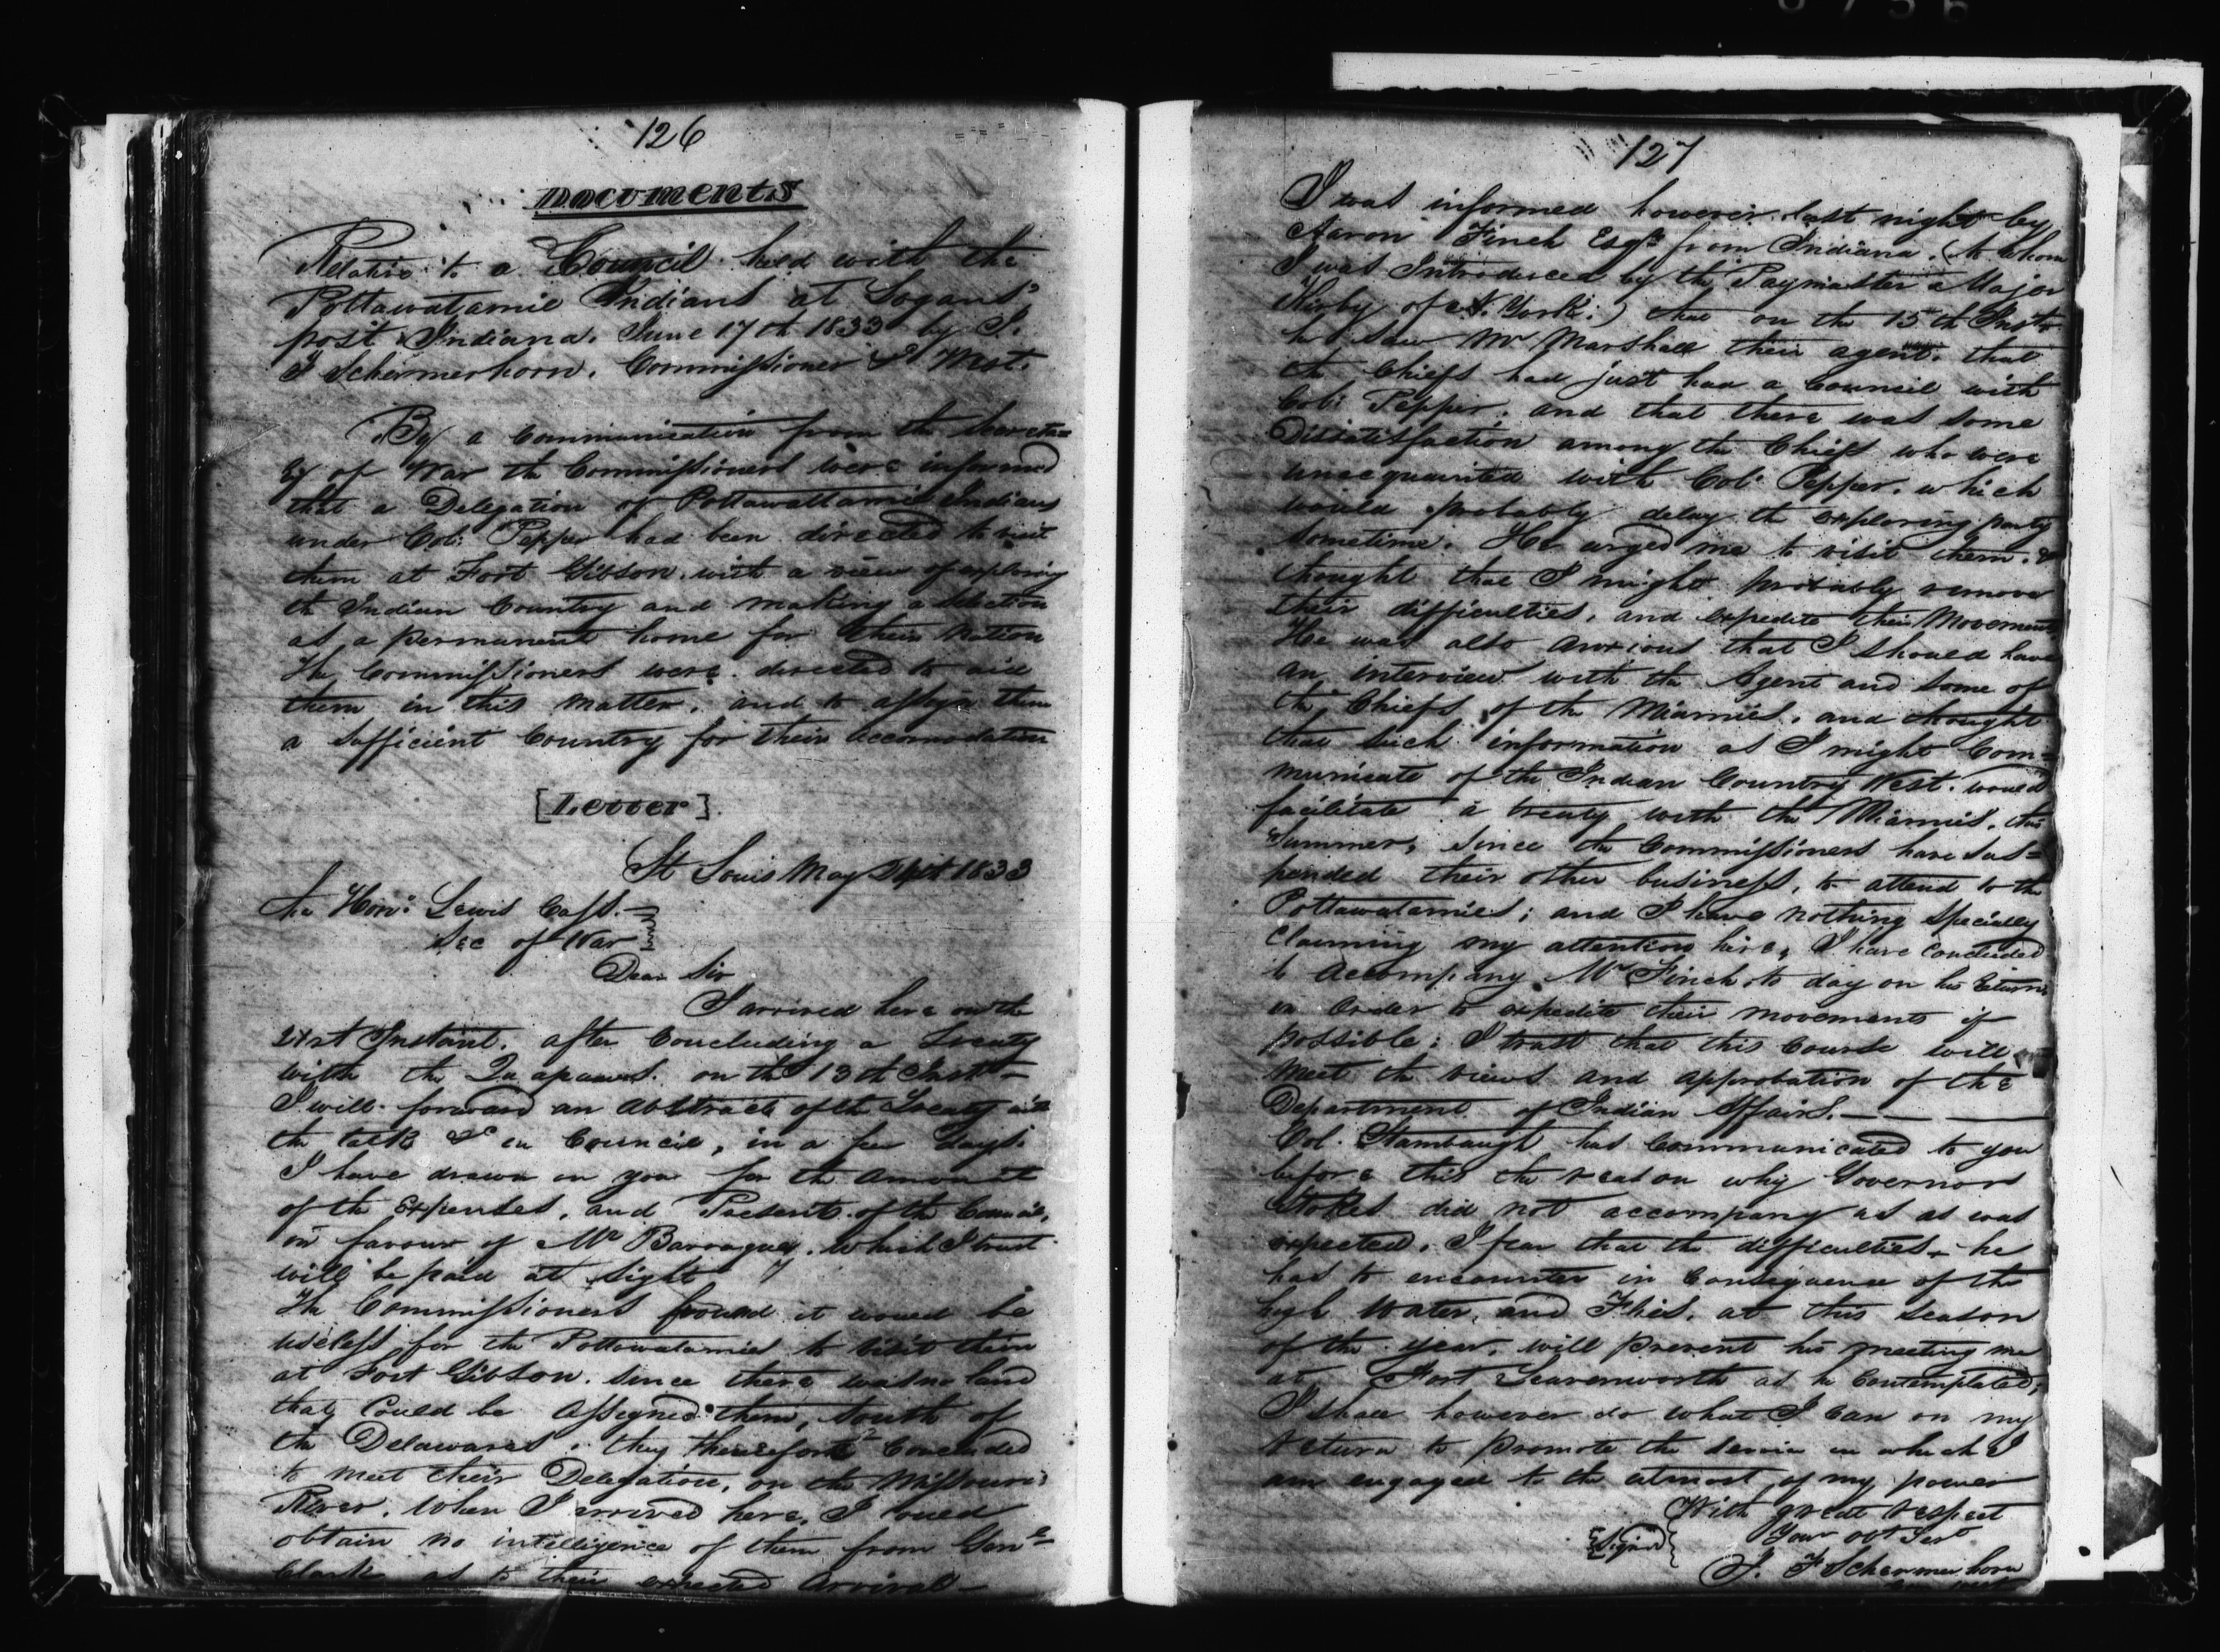 126
Documents
Relative to a Council held with the
Pottawatamie Indians at Logans=
post Indiana. June 17th 1833 by J.
F Schermerhorn. Commissioner &c West.
By a Communication from the Secreta=
ry of War the Commissioners were informed
that a Delegation of Pottawattamie Indians
under Col: Pepper had been directed to visit
them at Fort Gibson with a view of exploring
the Indian Country and making a selection
as a permanent home for their nation
The Commissioners were directed to aid
them in this matter, and to assign them
a sufficient Country for their accomodation
[Letter]
St Louis May 1833
The Hon: Lewis Cass.
Sec of War
Dear Sir
I arrived here on the
21st Instant. after Concluding a Treaty
with the Quapaws. on the 13th Inst-
I will forward an abstract of the Treaty and
the talk &c in Council, in a few days.
I have drawn on you for the amount
of the Expenses, and Presents of the Council,
in favour of Mr Barraque, which I trust
will be paid at sight
The Commissioners found it would be
useless for the Pottowatamies to visit them
at Fort Gibson. since there was no land
that Could be assigned them, south of
the Delawares. they therefore Concluded
to meet their Delegation, on the Missouri
River. When I arrived here, I could
obtain no intelligence of them from Genl=
Clark as to their expected arrival-
127
I was informed however last night by
Aaron Finch Esqr from Indiana. (to whom
I was Introduced by the Paymaster Major
Kirby of N. York.) that on the 15th Inst.
he saw Mr Marshall their agent. that
the Chiefs had just had a Council with
Col: Pepper. and that there was some
Disatisfaction among the Chiefs who were
unacquainted with Col: Pepper. which
would probably delay the exploring party
sometime. He urged me to visit them. &
thought that I might probably remove
their difficulties, and expedite their Movements
He was also anxious that I should have
an interview with the Agent and some of
the Chiefs of the Miamies, and thought
that such information as I might Com=
municate of the Indian Country West. would
facilitate a treaty with the Miamies. this
Summer, since the Commissioners have sus=
pended their other business, to attend to the
Pottawatamies; and I have nothing specially
Claiming my attention here, I have concluded
to accompany Mr Finch to day on his return
in Order to expedite their movements if
possible; I trust that this Course will
meet the views and approbation of the
Department of Indian Affairs.
Col. Stambaugh has Communicated to you
before this the reason why Governor
Stokes did not accompany us as was
expected. I fear that the difficulties he
has to encounter in Consequence of the
high Water, and Flies, at this season
of the year, will prevent his meeting me
at Fort Leavenworth as he Contemplated;
I shall however do what I Can on my
return to promote the service in which I
am engaged to the utmost of my power
With great respect
Your obt Sert
{Signed}
J. F Schermerhorn